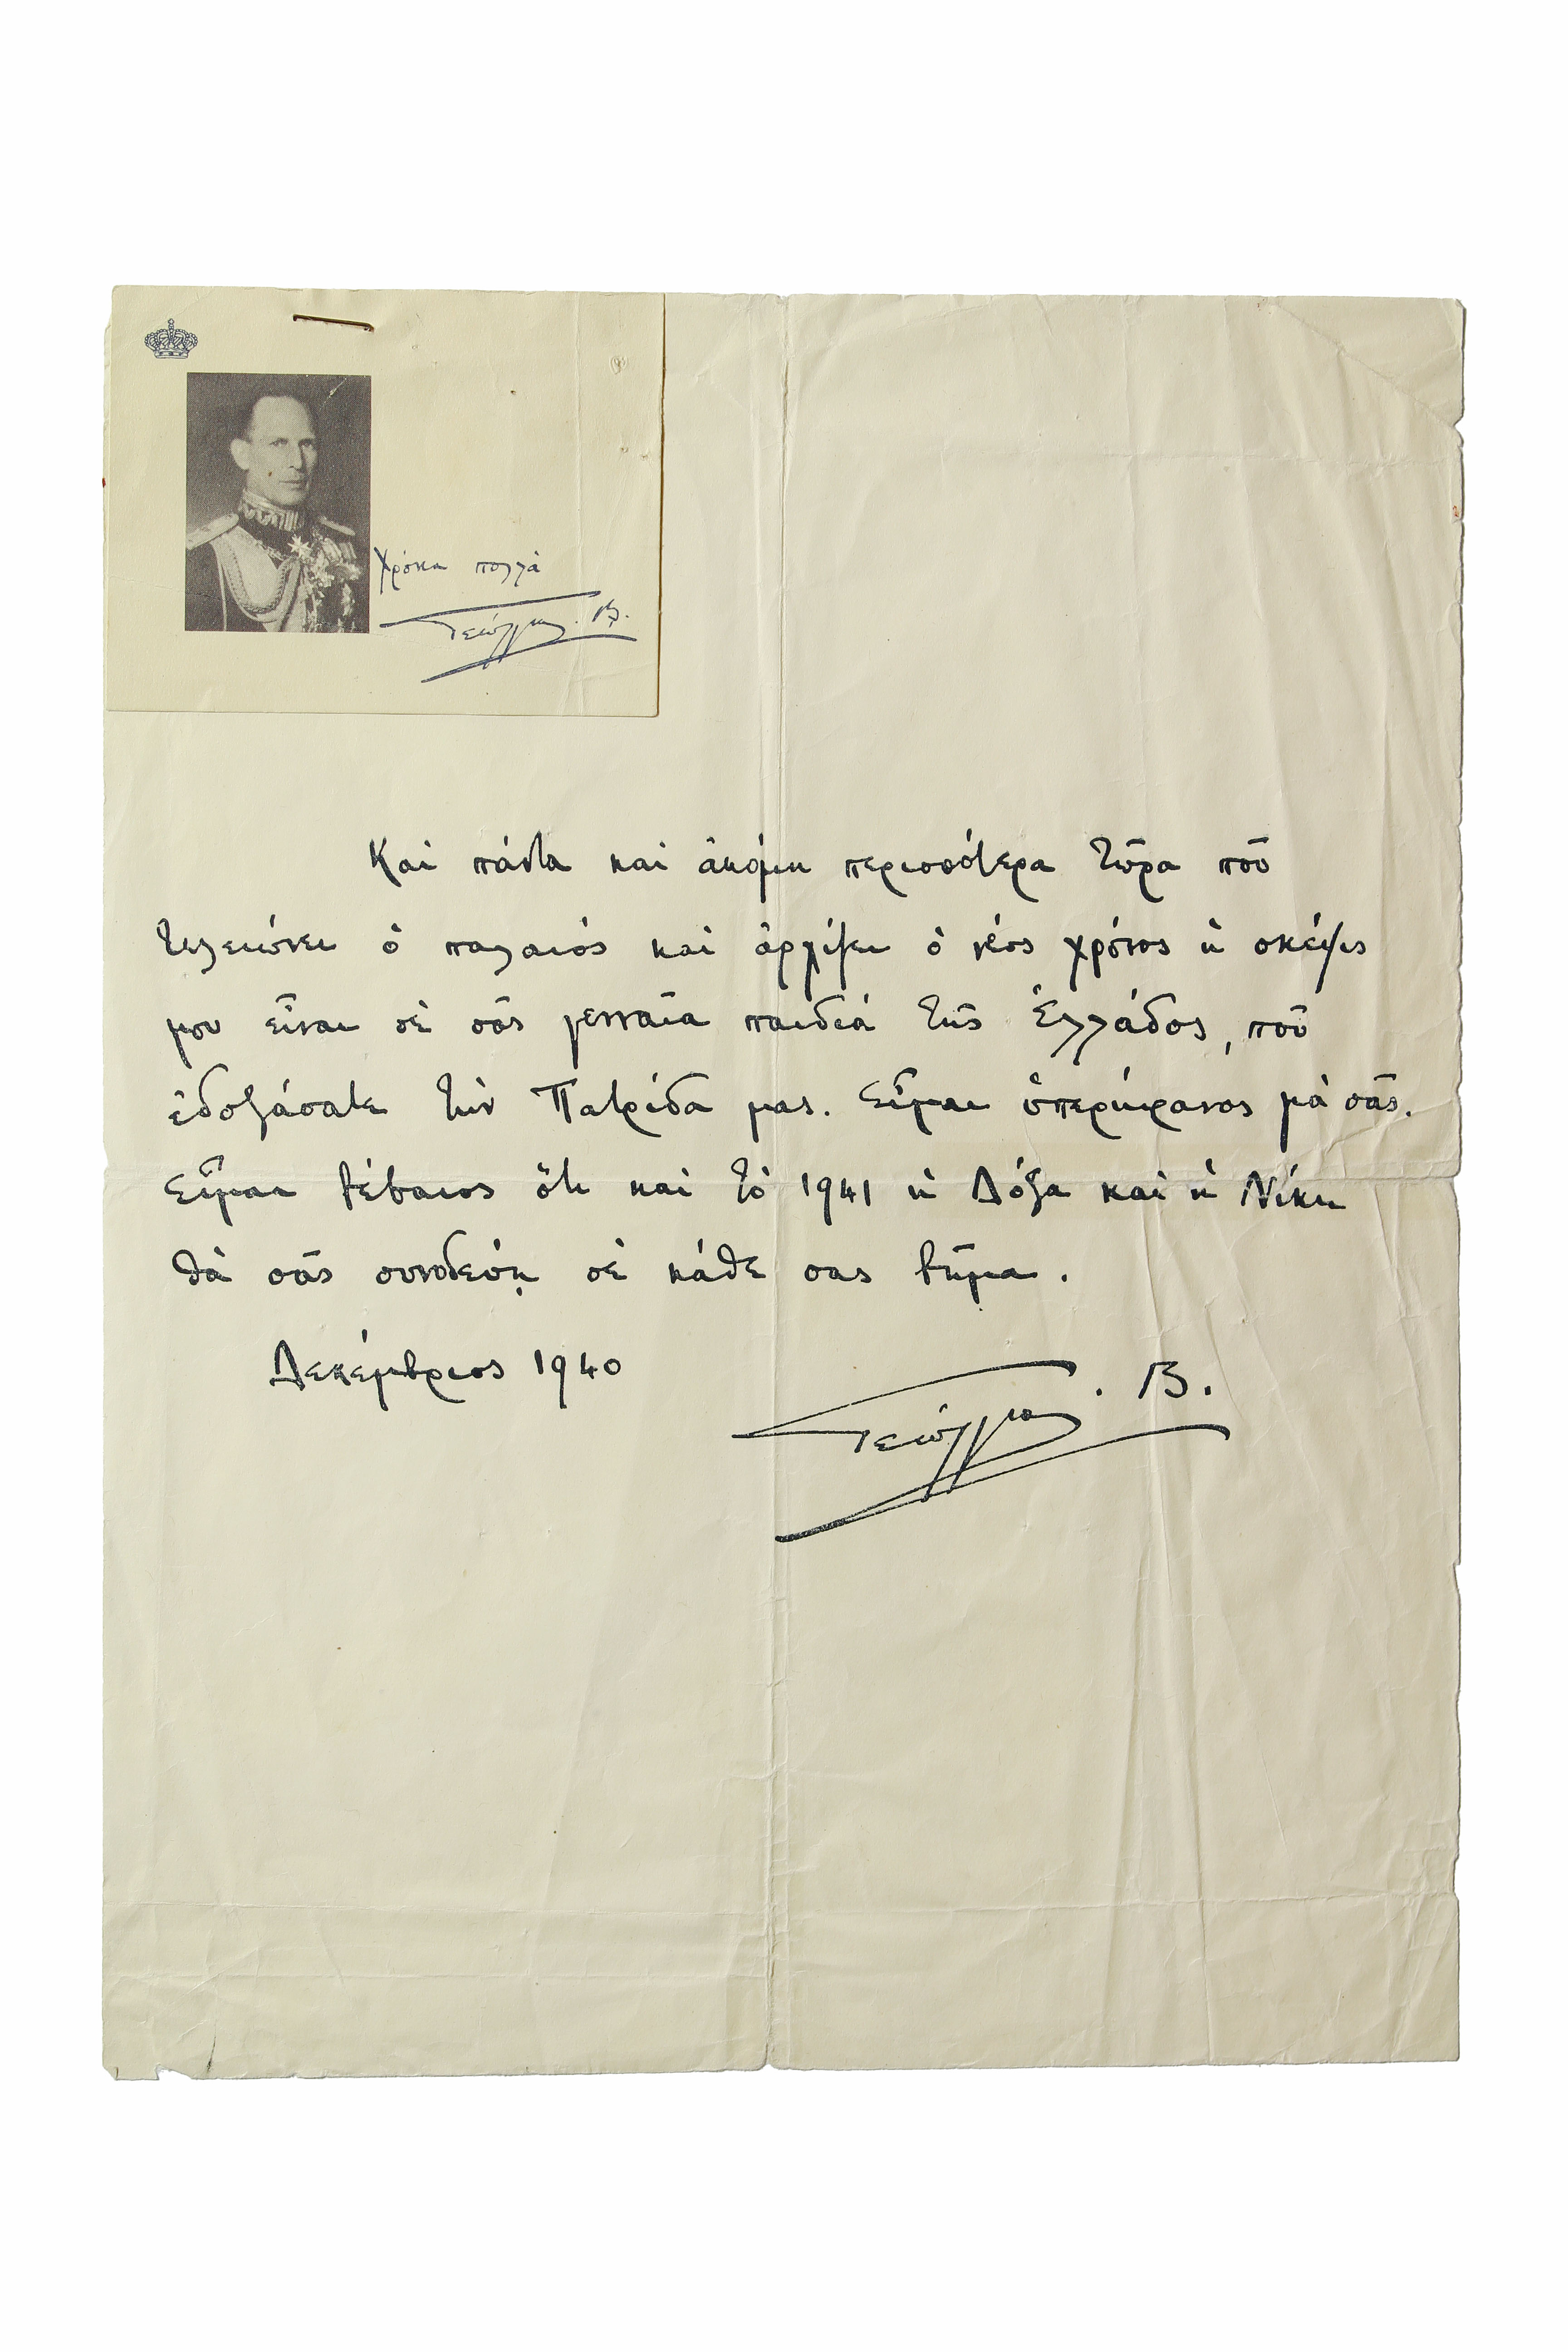 Χρόνια πολλὰ
Γεώργιος . Β.
Καὶ πάντα καὶ ἀκόμη περισσότερα τῶρα ποῦ
τελειώνει ὁ παλαιός καὶ ἀρχίζει ὁ νέος χρόνος ἡ σκέψις
μου εἶναι σὲ σᾶς γενναῖα παιδιά τῆς Ἑλλάδος, ποῦ
ἐδοξάσατε τὴν Πατρίδα μας. Εἶμαι ὑπερήφανος μὰ σᾶς.
Εἶμαι βέβαιος ὅτι καὶ τὸ 1941 ἡ Δόξα καὶ ἡ Νίκη
θὰ σᾶς συνοδεύῃ σὲ κάθε σας βῆμα.
Δεκέμβριος 1940
Γεώργιος . Β.